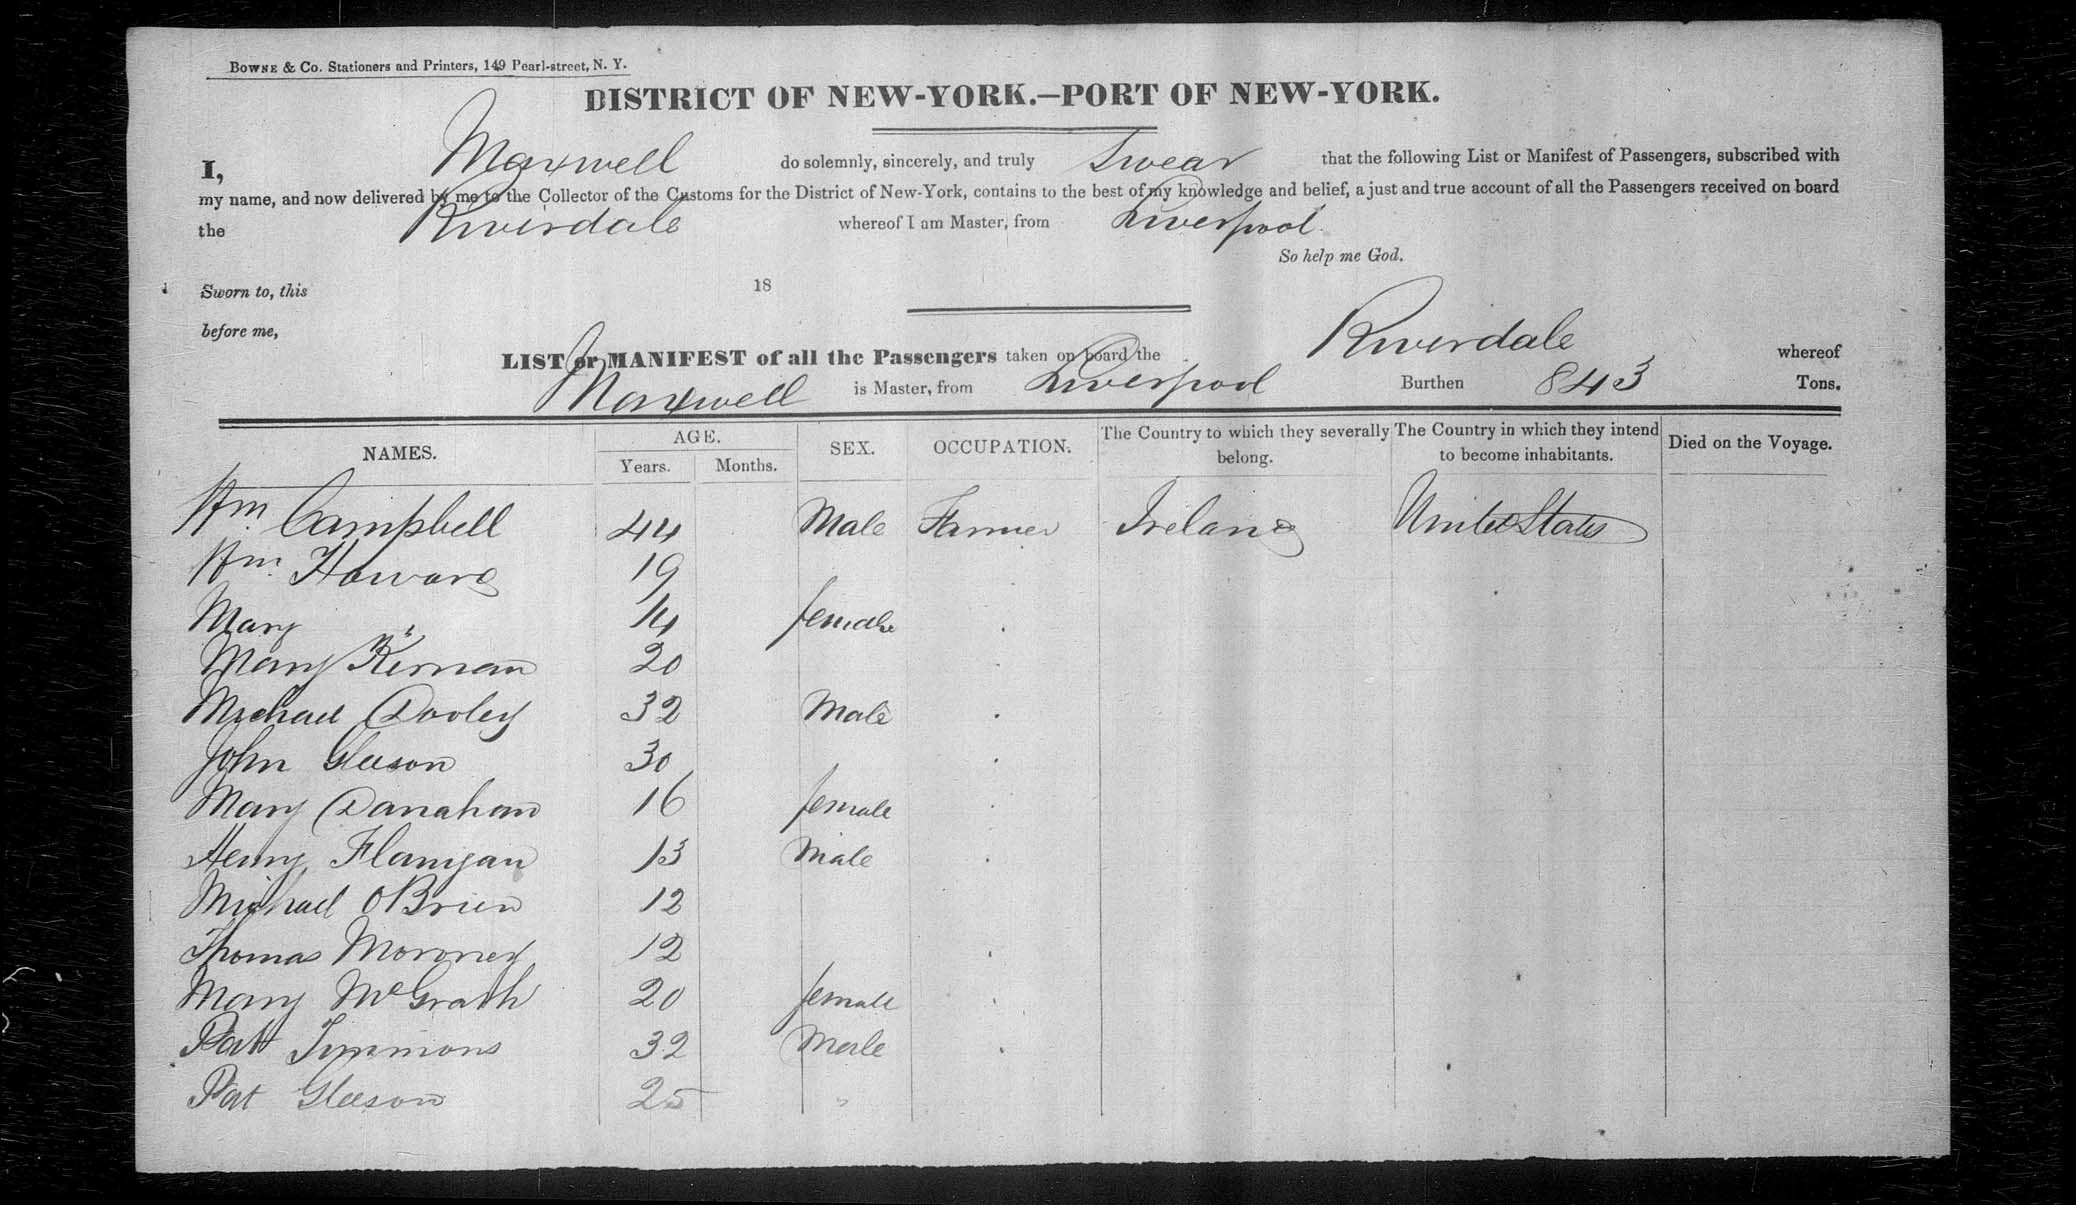 BOWNE & CO. Stationers and Printers, 149 Pearl-street, N. Y.
DISTRICT OF NEW-YORK.—PORT OF NEW-YORK.
I, Maxwell do solemnly, sincerely, and truly Swear that the following List or Manifest of Passengers, subscribed with
my name, and now delivered by me to the Collector of the Customs for the District of New-York, contains to the best of my knowledge and belief, a just and true account of all the Passengers received on board
the Riverdale whereof I am Master, from Liverpool
So help me God.
Sworn to, this 18
before me,
LIST or MANIFEST of all the Passengers taken on board the Riverdale whereof
Maxwell is Master, from Liverpool Burthen 843 Tons.
NAMES. AGE. Years. Months. SEX. OCCUPATION. The Country to which they severally belong. The Country in which they intend to become inhabitants. Died on the Voyage.
Wm Campbell 44 Male Farmer Ireland United States
Wm Howard 19
Mary " 14 female
Mary Kernan 20
Michael Dooley 32 Male
John Gleeson 30
Mary Danahan 16 female
Henry Flanigan 13 Male
Michael OBrien 12
Thomas Moroney 12
Mary McGrath 20 female
Patt Timmons 32 Male
Pat Gleeson 25 "